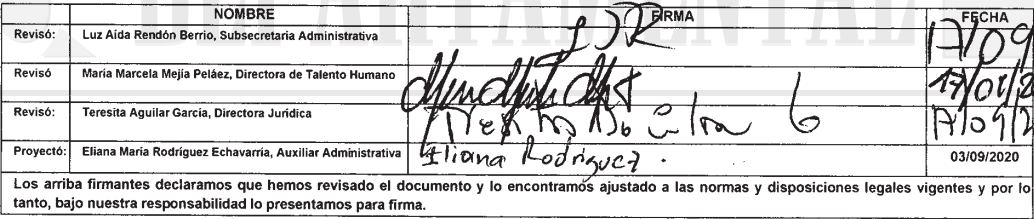 NOMBRE FIRMA FECHA
Revisó: Luz Aida Rendón Berrio, Subsecretaria Administrativa 17/09
Revisó María Marcela Mejía Peláez, Directora de Talento Humano
Revisó: Teresita Aguilar García, Directora Jurídica
Proyectó: Eliana María Rodríguez Echavarría, Auxiliar Administrativa Eliana Rodriguez. 03/09/2020
Los arriba firmantes declaramos que hemos revisado el documento y lo encontramos ajustado a las normas y disposiciones legales vigentes y por lo
tanto, bajo nuestra responsabilidad lo presentamos para firma.